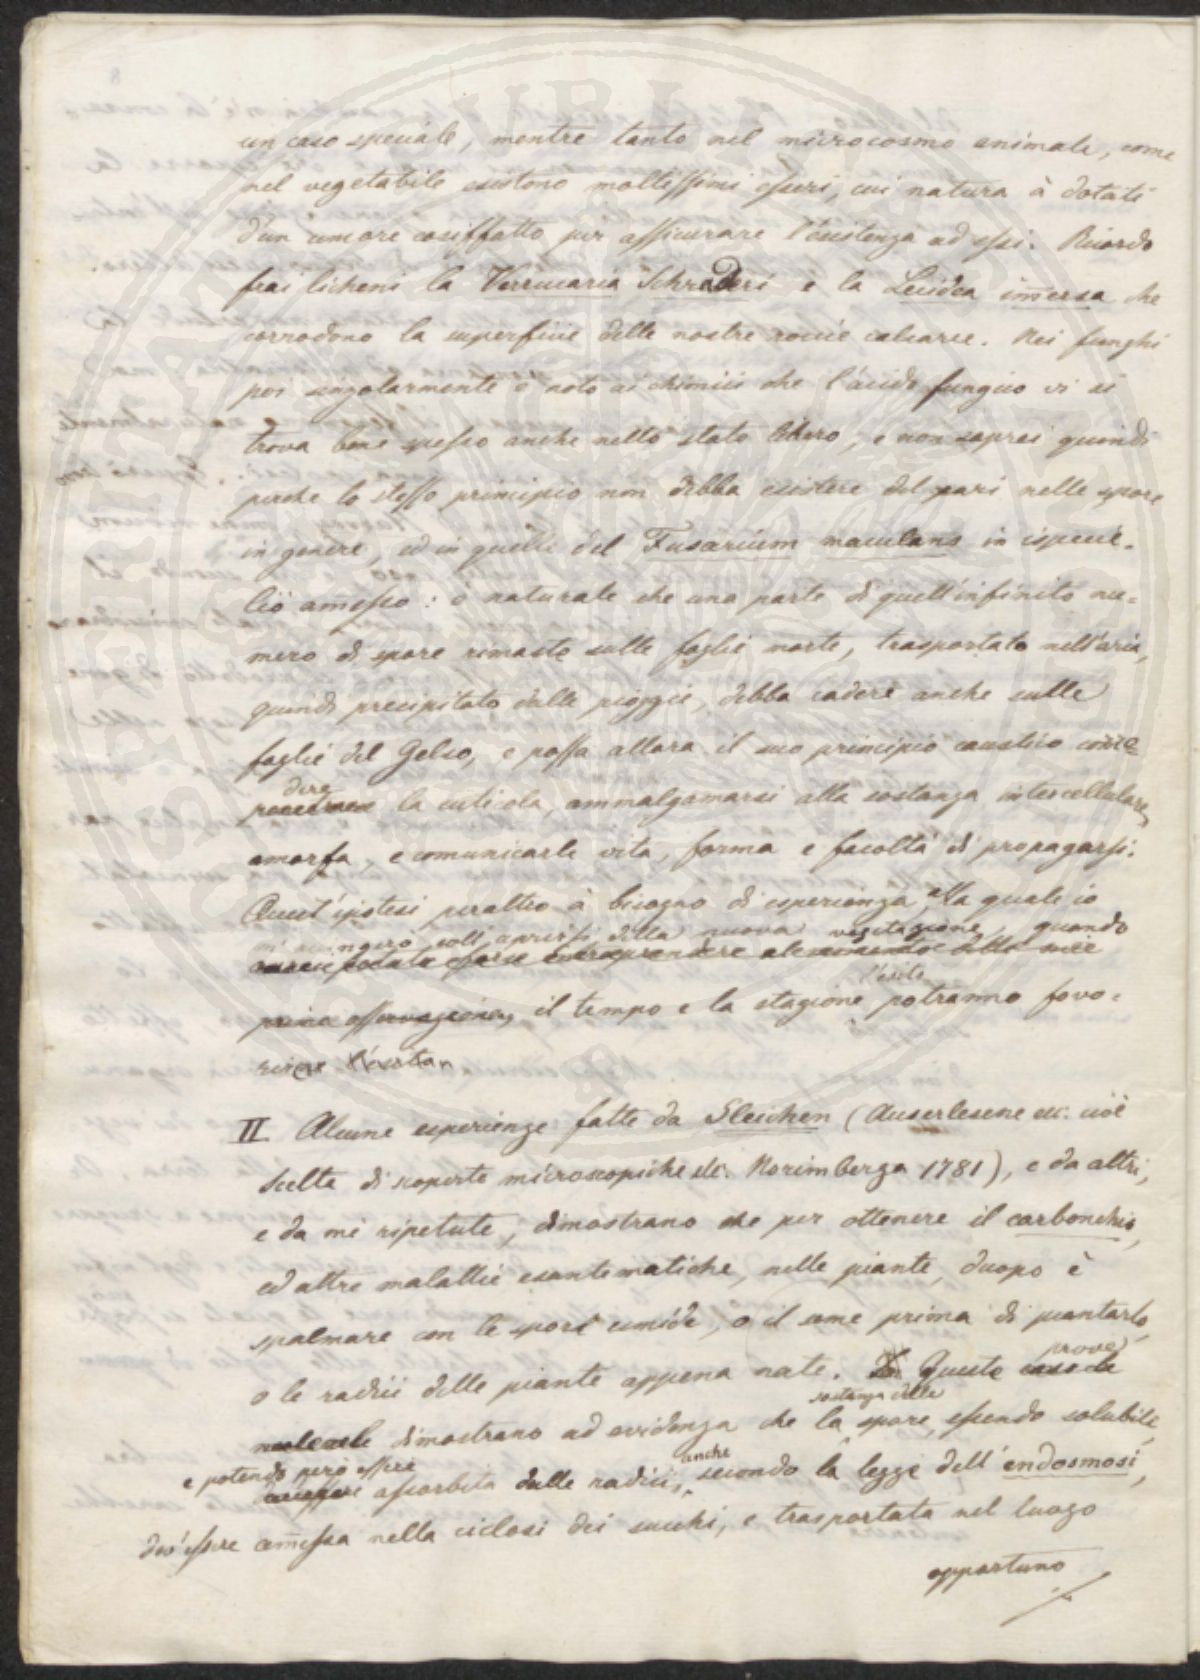 un caso speciale, mentre tanto nel microcosmo animale, come
nel vegetabile esistono moltissimi esseri, cui natura à dotati
d'un umore cosiffatto per assicurare l'esistenza ad essi. Ricordo
frai licheni la Verrucaria Schraderi e la Lecidea im̄ersa che
corrodono la superficie delle nostre roccie calcaree. Nei funghi
poi singolarmente è noto ai chimici che l'acido fungico vi si
trova bene spesso anche nello stato libero, e non saprei quindi
perchè lo stesso principio non debba esistere del pari nelle spore
in genere, ed in quelle del Fusarium maculans in ispecie.
Ciò am̄esso: è naturale che una parte di quell'infinito nu=
mero di spore rimaste sulle foglie morte, trasportato nell'aria,
quindi precipitato dalle pioggie, debba cadere anche sulle
foglie del Gelso, e possa allora il suo principio caustico corro=
dere
la cuticola, ammalgamarsi alla sostanza intercellulare
amorfa, e comunicarle vita, forma e facoltà di propagarsi.
Quest'ipotesi peraltro à bisogno di esperienza, alla quale io
m'accingerò coll'aprirsi della nuova vegetazione, quando
l'esito
prima osservazione, il tempo e la stagione potranno favo=
rire l'esito
II Alcune esperienze fatte da Gleichen (Auserlesene ec. cioè
Scelte di scoperte microscopiche ec. Norimberga 1781), e da altri,
e da me ripetute, dimostrano che per ottenere il carbonchio,
ed altre malattie esantematiche, nelle piante, duopo è
spalmare con le spore umide, o il seme prima di piantarlo,
prove
o le radici delle piante appena nate. Queste
sostanza delle
dimostrano ad evidenza che la spore, essendo solubile,
e potendo però essere anche
assorbita dalle radici, secondo la legge dell'endosmosi,
dev'essere am̄essa nella ciclosi dei succhi, e trasportata nel luogo
opportuno